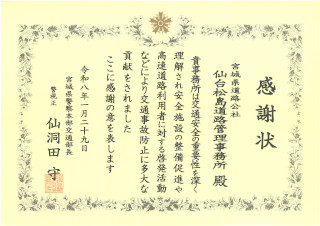 感謝状
宮城県道路公社
仙台松島道路管理事務所 殿
貴事務所は交通安全の重要性を深く
理解され安全施設の整備促進や
高速道路利用者に対する啓発活動
などにより交通事故防止に多大な
貢献をされました
ここに感謝の意を表します
令和八年一月二十九日
宮城県警察本部交通部長
警視正 仙洞田 守